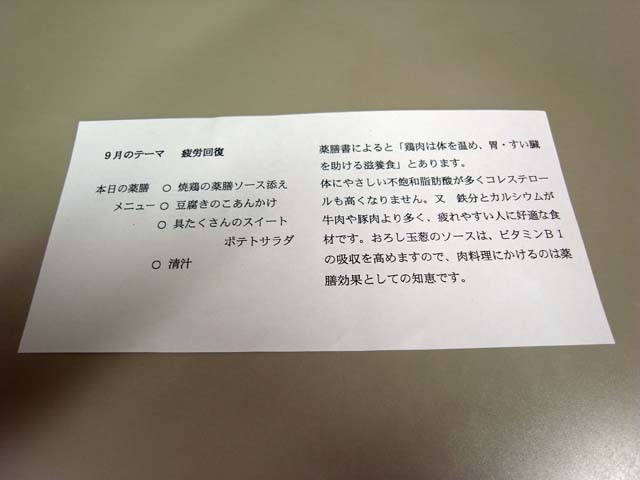 9月のテーマ 疲労回復
本日の薬膳 ○ 焼鶏の薬膳ソース添え
メニュー ○ 豆腐きのこあんかけ
○ 具たくさんのスイート
ポテトサラダ
○ 清汁
薬膳書によると「鶏肉は体を温め、胃・すい臓
を助ける滋養食」とあります。
体にやさしい不飽和脂肪酸が多くコレステロー
ルも高くなりません。又 鉄分とカルシウムが
牛肉や豚肉より多く、疲れやすい人に好適な食
材です。おろし玉葱のソースは、ビタミンB1
の吸収を高めますので、肉料理にかけるのは薬
膳効果としての知恵です。